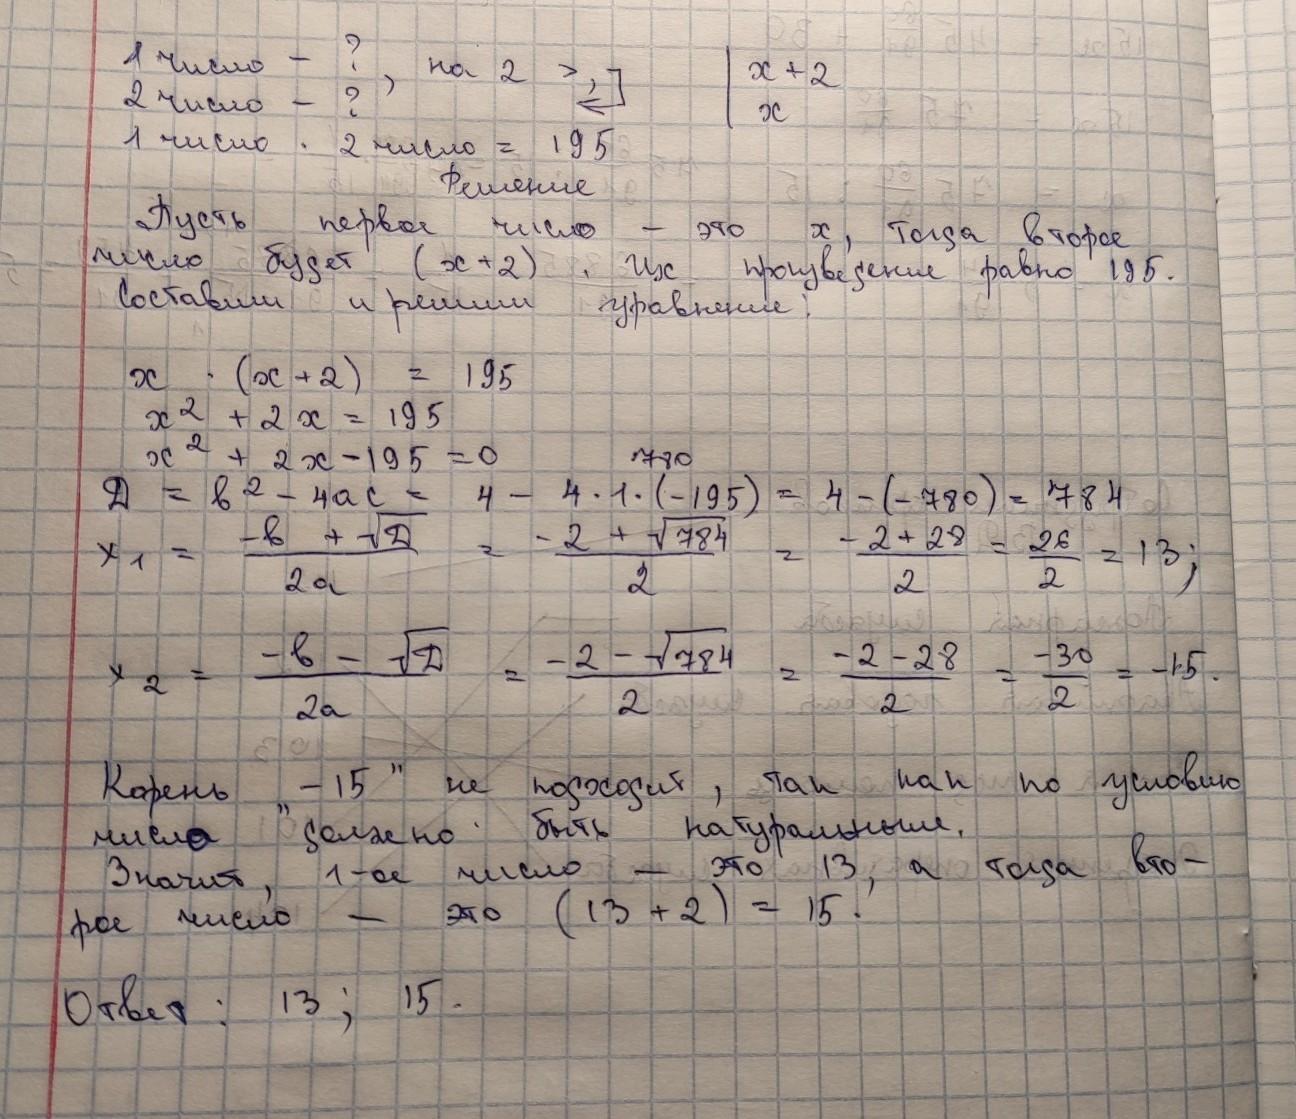 1 число – ? , на 2 >, | x + 2
2 число – ? | x
1 число · 2 число = 195
Решение
Пусть первое число – это x, тогда второе
число будет (x+2). Их произведение равно 195.
Составим и решим уравнение:
x · (x+2) = 195
x² + 2x = 195
x² + 2x – 195 = 0
780
D = b² – 4ac = 4 – 4·1·(-195) = 4 – (-780) = 784
x₁ = (-b + √D)/2a = (-2 + √784)/2 = (-2+28)/2 = 26/2 = 13;
x₂ = (-b – √D)/2a = (-2 – √784)/2 = (-2-28)/2 = -30/2 = -15.
Корень „-15" не подходит, так как по условию
число должно быть натуральным.
Значит, 1-ое число – это 13, а тогда вто-
рое число – это (13 + 2) = 15.
Ответ: 13; 15.